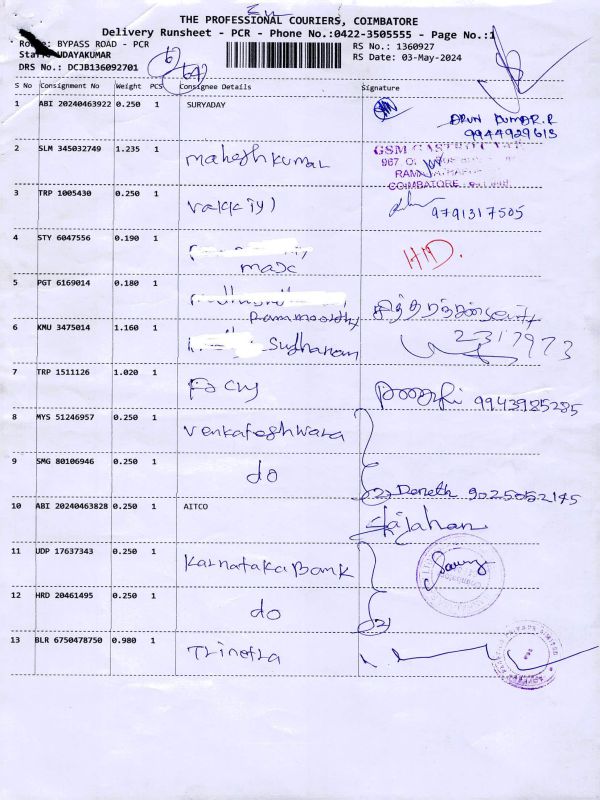 THE PROFESSIONAL COURIERS, COIMBATORE
Delivery Runsheet - PCR - Phone No.:0422-3505555 - Page No.:1
Route: BYPASS ROAD - PCR
RS No.: 1360927
Staff: UDAYAKUMAR
RS Date: 03-May-2024
DRS No.: DCJB136092701
S No Consignment No Weight PCS Consignee Details Signature
1 ABI 20240463922 0.250 1 SURYADAY ARUN KUMAR.R
9944929613
2 SLM 345032749 1.235 1 maheshkumar GSM
967,
COIMBATORE
3 TRP 1005430 0.250 1 9791317505
4 STY 6047556 0.190 1 HID.
max
5 PGT 6169014 0.180 1
Rammoorthy
6 KMU 3475014 1.160 1 Sudharsan 2317973
7 TRP 1511126 1.020 1 9943985285
8 MYS 51246957 0.250 1 Venkateshwara
9 SMG 80106946 0.250 1 do 9025052145
10 ABI 20240463828 0.250 1 AITCO Shajahan
11 UDP 17637343 0.250 1 Karnataka Bank
12 HRD 20461495 0.250 1 do
13 BLR 6750478750 0.980 1 Trinetra